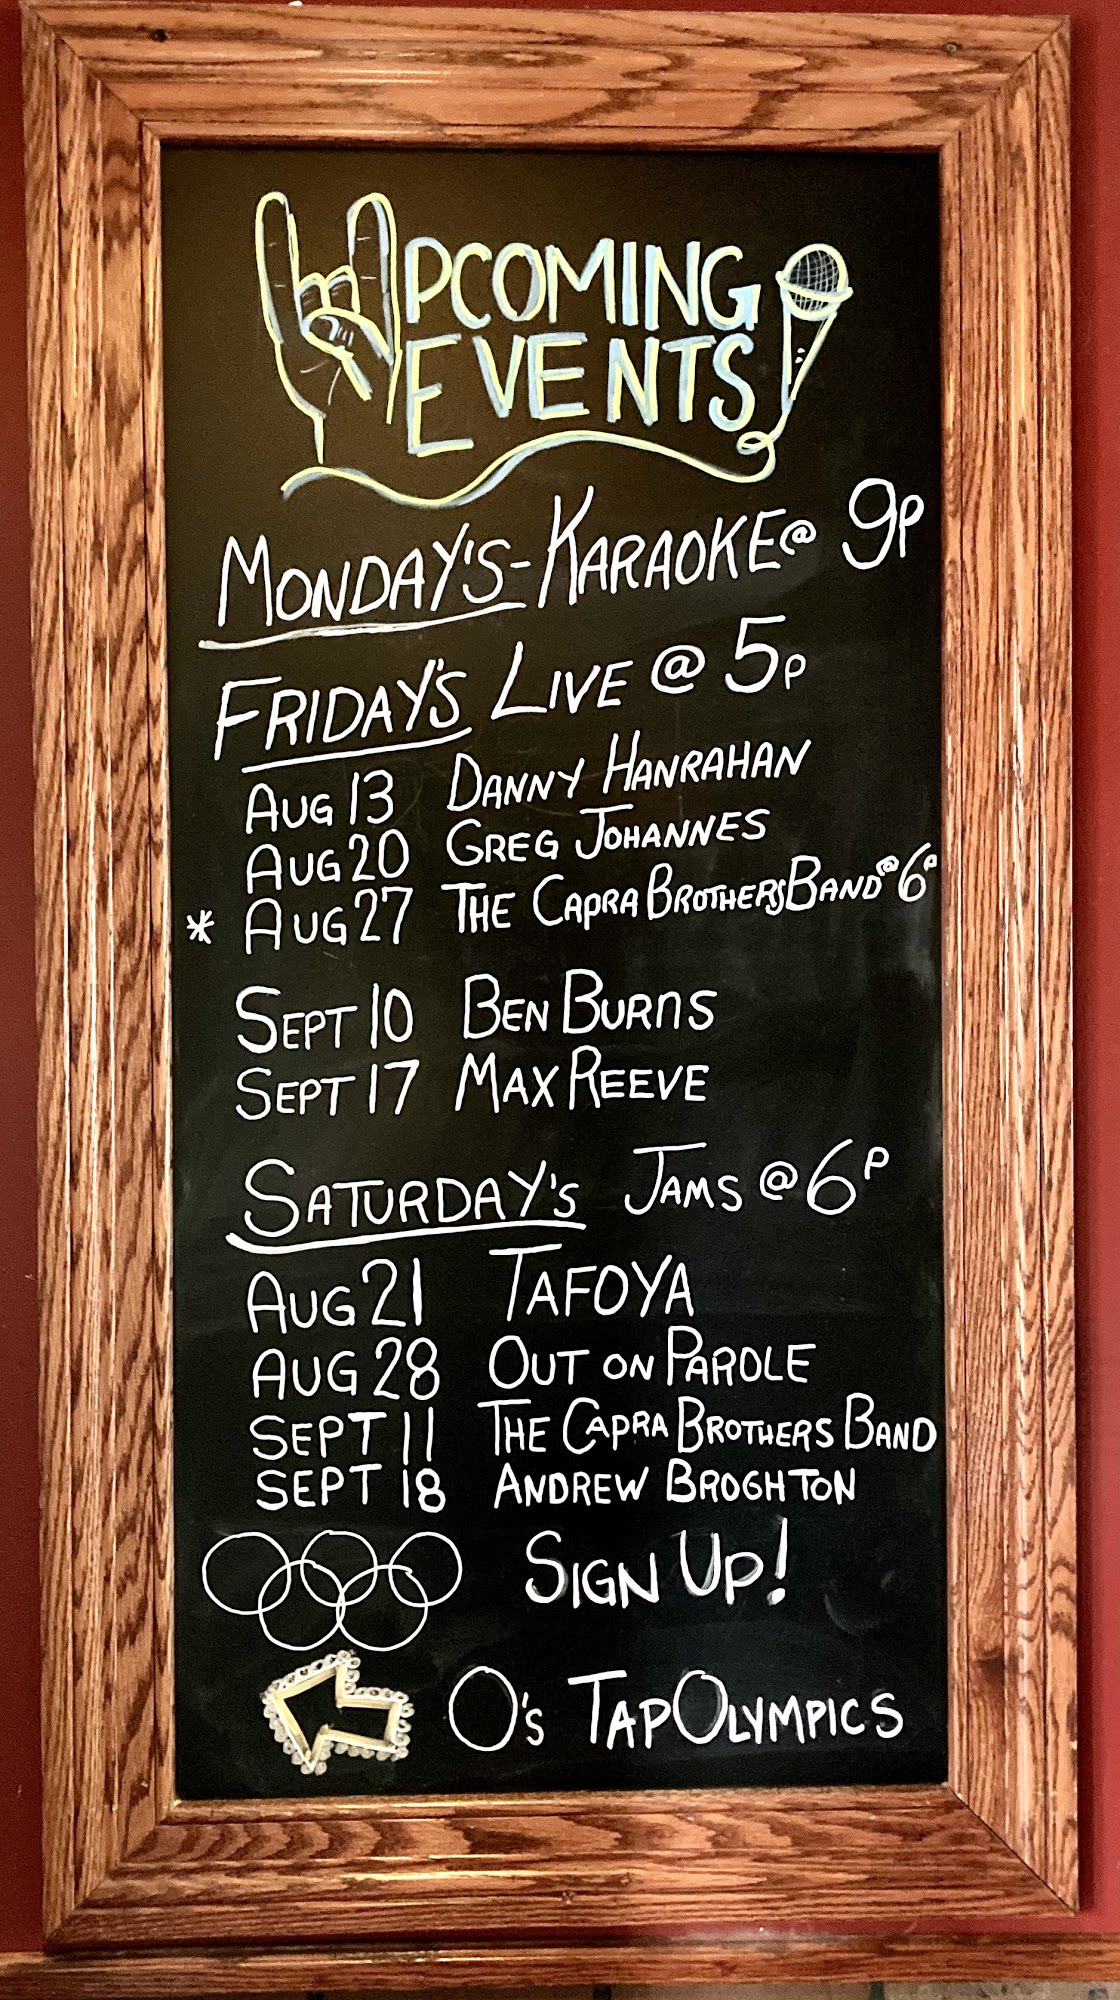 UPCOMING
EVENTS
MONDAY'S-KARAOKE@ 9P
FRIDAY'S LIVE @ 5P
AUG 13 DANNY HANRAHAN
AUG 20 GREG JOHANNES
* AUG 27 THE CAPRA BROTHERS BAND @ 6P
SEPT 10 BEN BURNS
SEPT 17 MAX REEVE
SATURDAY'S JAMS @ 6P
AUG 21 TAFOYA
AUG 28 OUT ON PAROLE
SEPT 11 THE CAPRA BROTHERS BAND
SEPT 18 ANDREW BROGHTON
SIGN UP!
O'S TAPOLYMPICS